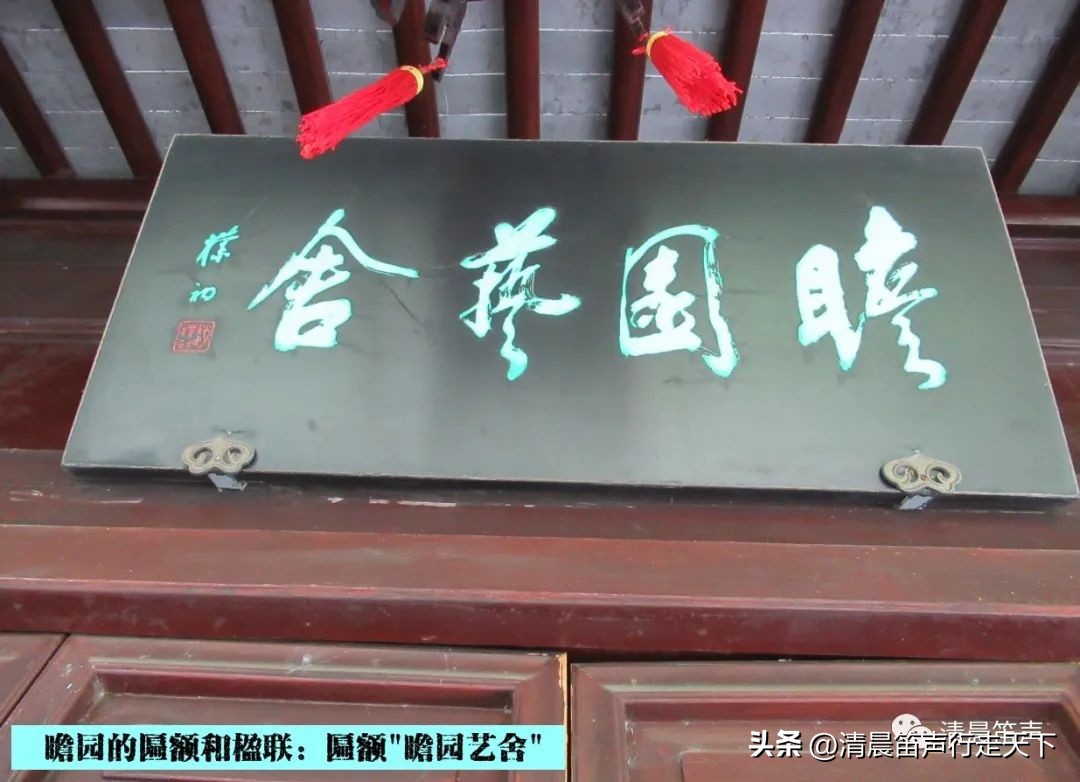 瞻園藝舍
樸初
瞻园的匾额和楹联：匾额"瞻园艺舍"
清晨笛声
头条 @清晨笛声行走天下